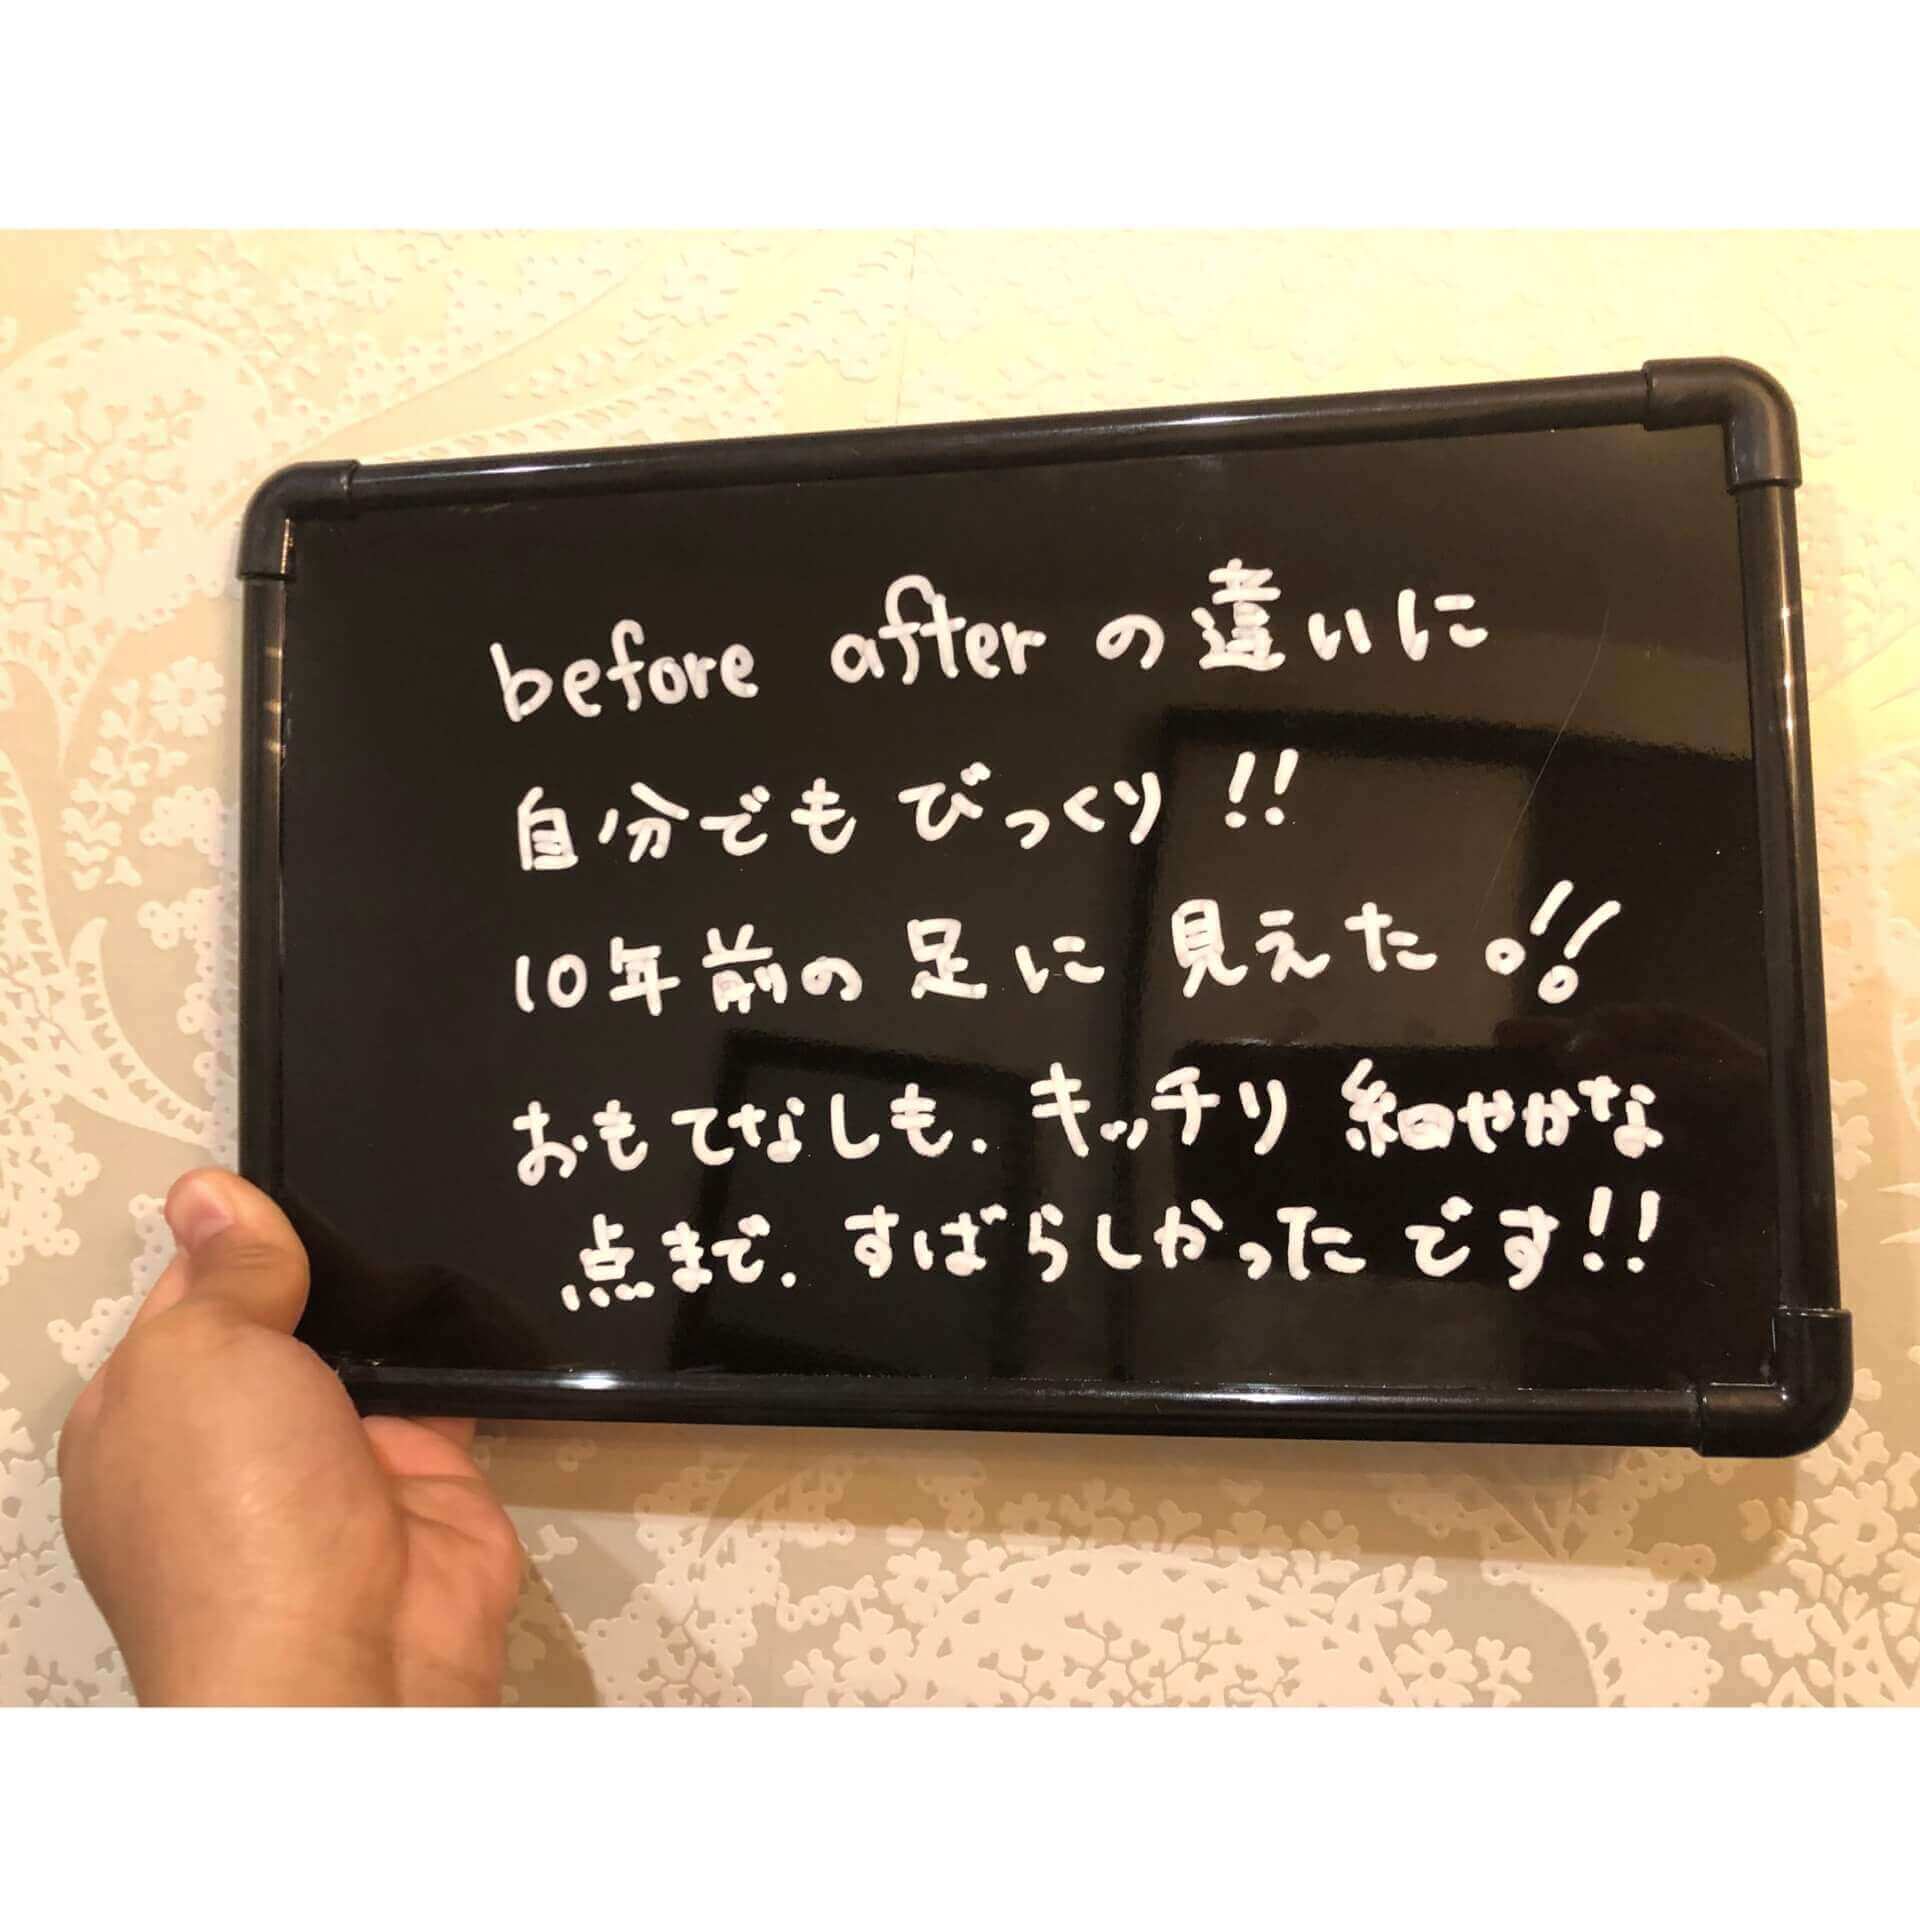 before afterの違いに
自分でもびっくり!!
10年前の足に見えた!!
おもてなしも、キッチリ細やかな
点まで、すばらしかったです!!